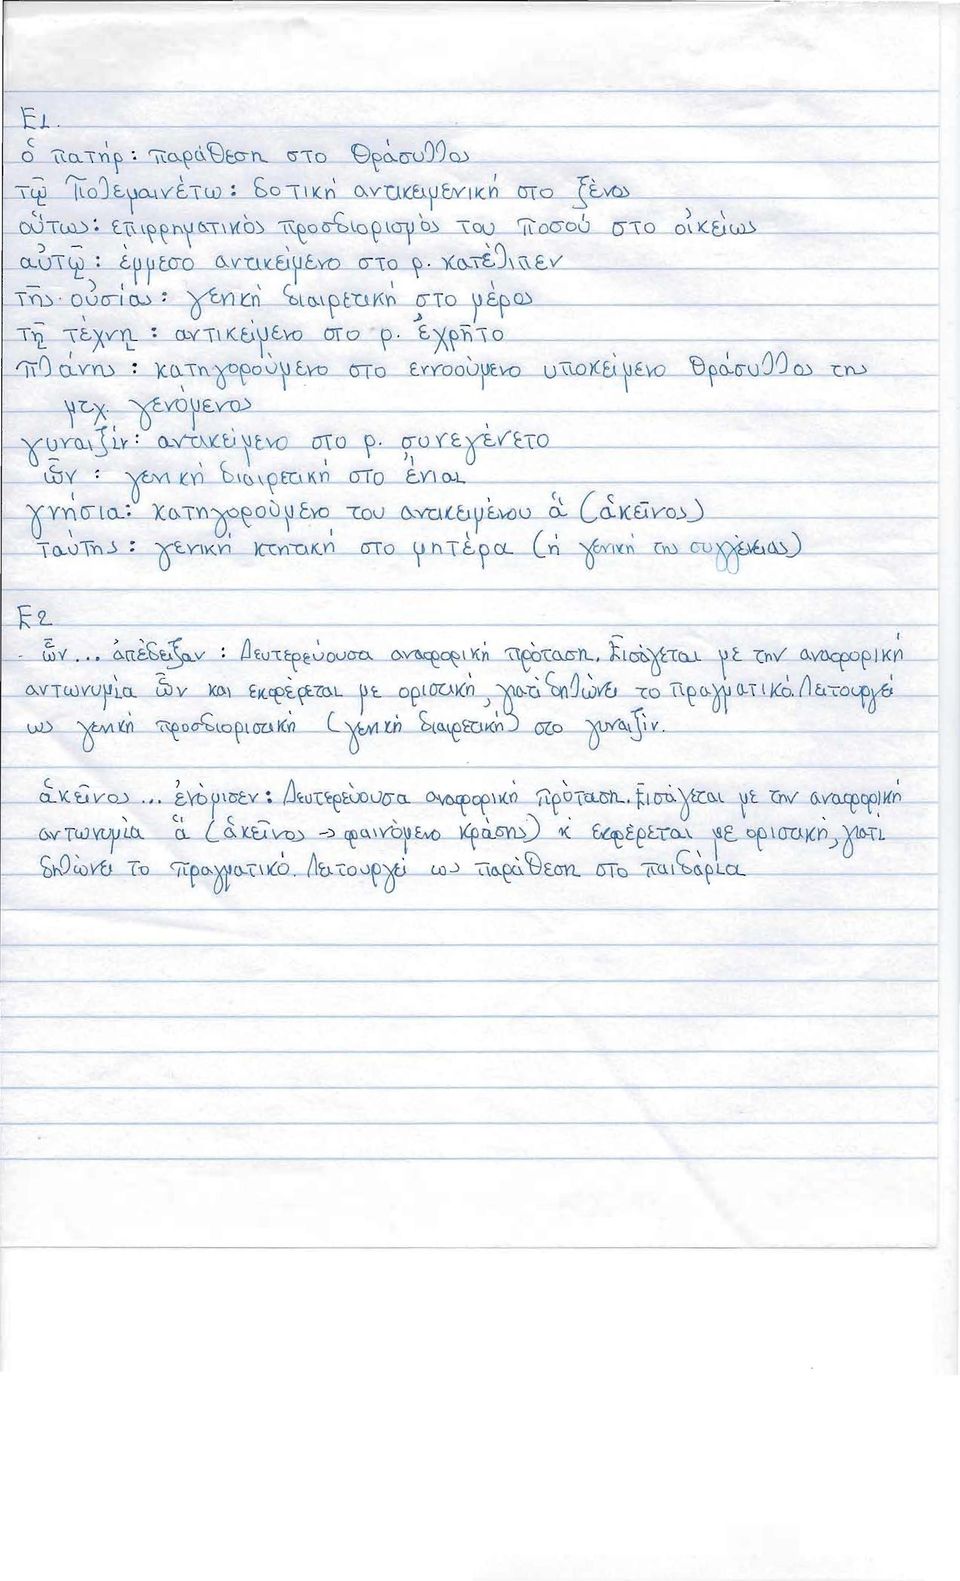 Ε1.
ὁ πατήρ : παράθεση στο Θράσυλλος
τῷ Πολεμαινέτῳ : δοτική αντικειμενική στο ξένος
οὕτως : επιρρηματικός προσδιορισμός του ποσού στο οἰκείως
αὐτῷ : έμμεσο αντικείμενο στο ρ. κατέλιπεν
τῆς οὐσίας : γενική διαιρετική στο μέρος
τῇ τέχνῃ : αντικείμενο στο ρ. ἐχρῆτο
πλάνης : κατηγορούμενο στο εννοούμενο υποκείμενο Θράσυλλος της
μτχ. γενόμενος
γυναιξίν : αντικείμενο στο ρ. συνεγένετο
ὧν : γενική διαιρετική στο ἔνιαι
γνήσια : κατηγορούμενο του αντικειμένου ἅ (ἁκεῖνος)
ταύτης : γενική κτητική στο μητέρα (ή γενική της συγγένειας)
Ε2
- ὧν ... ἀπέδειξαν : Δευτερεύουσα αναφορική πρόταση. Εισάγεται με την αναφορική
αντωνυμία ὧν και εκφέρεται με οριστική, γιατί δηλώνει το πραγματικό. Λειτουργεί
ως γενική προσδιοριστική (γενική διαιρετική) στο γυναιξίν.
ἁκεῖνος ... ἐνόμισεν : Δευτερεύουσα αναφορική πρόταση. Εισάγεται με την αναφορική
αντωνυμία ἅ (ἁκεῖνος -> φαινόμενο κράσης) κ εκφέρεται με οριστική, γιατί
δηλώνει το πραγματικό. Λειτουργεί ως παράθεση στο παιδάρια